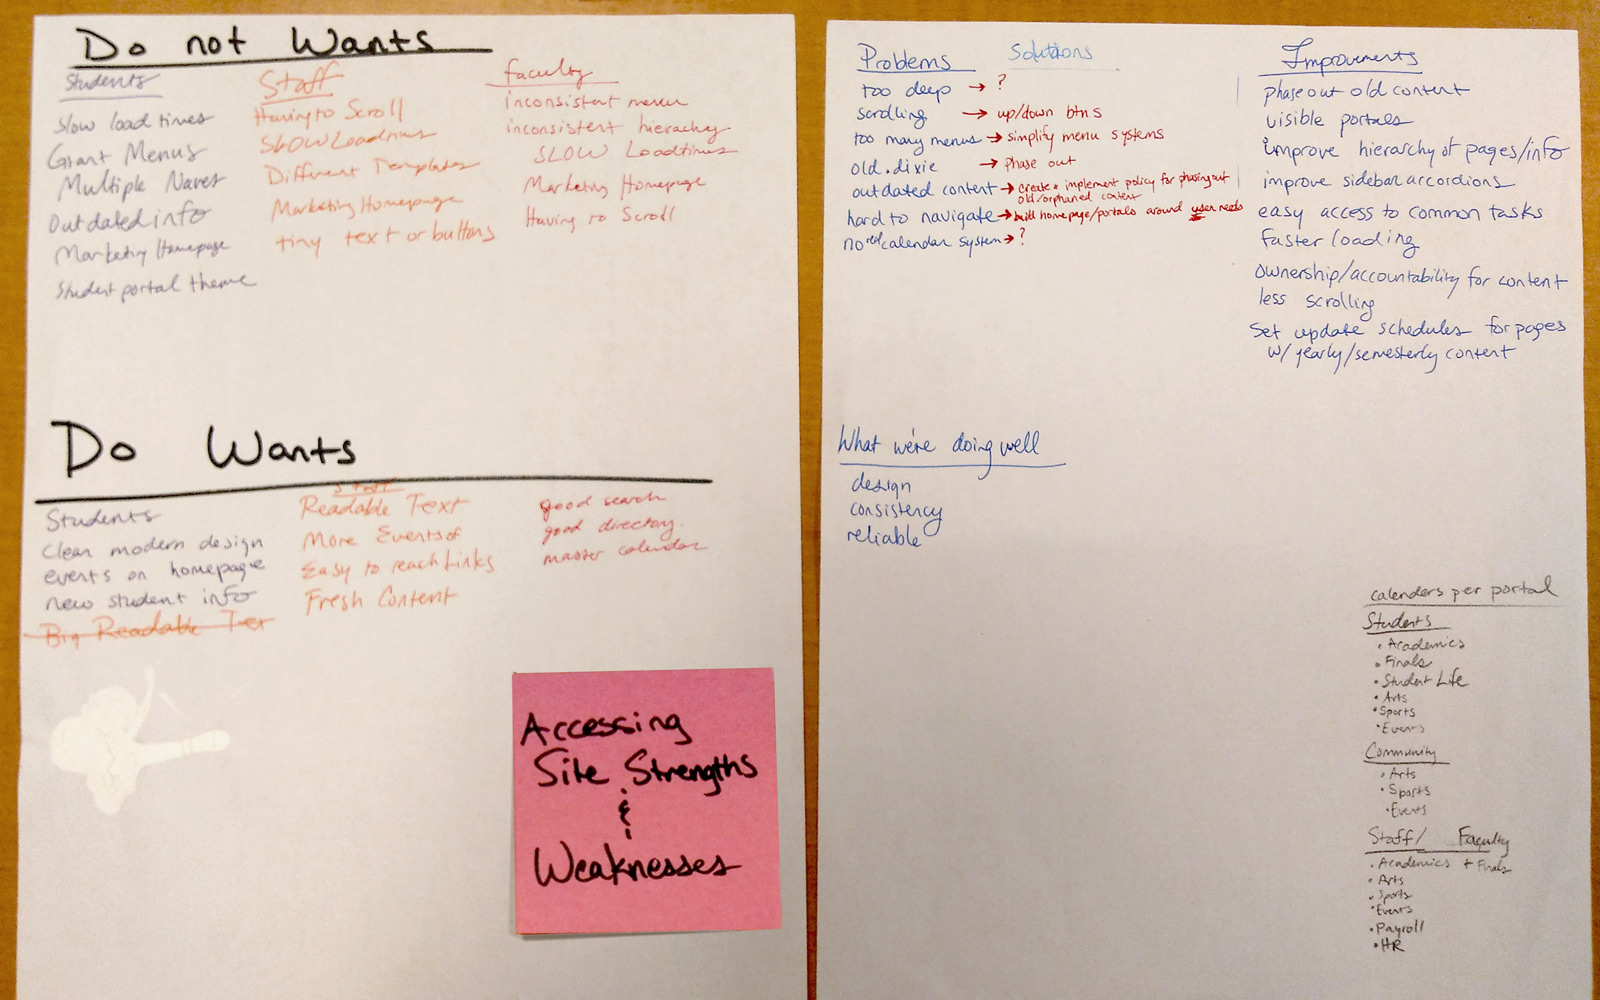 Do not Wants
Students
Slow load times
Giant Menus
Multiple Naves
Outdated info
Marketing Homepage
Student portal theme
Staff
Having to Scroll
SLOW Loadtimes
Different Templates
Marketing Homepage
tiny text or buttons
faculty
inconsistent menu
inconsistent hierachy
SLOW Loadtimes
Marketing Homepage
Having to Scroll
Do Wants
Students
clean modern design
events on homepage
new student info
Big Readable Tex
Staff
Readable Text
More Events of
Easy to reach Links
Fresh Content
good search
good directory.
master calendar
Accessing
Site Strengths
&
Weaknesses
Problems Solutions
too deep → ?
scrolling → up/down btns
too many menus → simplify menu systems
old.dixie → phase out
outdated content → create + implement policy for phasing out
old/orphaned content
hard to navigate → build homepage/portals around user needs
no real calendar system → ?
Improvements
phase out old content
visible portals
improve hierarchy of pages/info
improve sidebar accordions
easy access to common tasks
faster loading
ownership/accountability for content
less scrolling
Set update schedules for pages
w/ yearly/semesterly content
What we're doing well
design
consistency
reliable
calenders per portal
Students
• Academics
• Finals
• Student Life
• Arts
• Sports
• Events
Community
• Arts
• Sports
• Events
Staff/ Faculty
• Academics + Finals
• Arts
• Sports
• Events
• Payroll
• HR